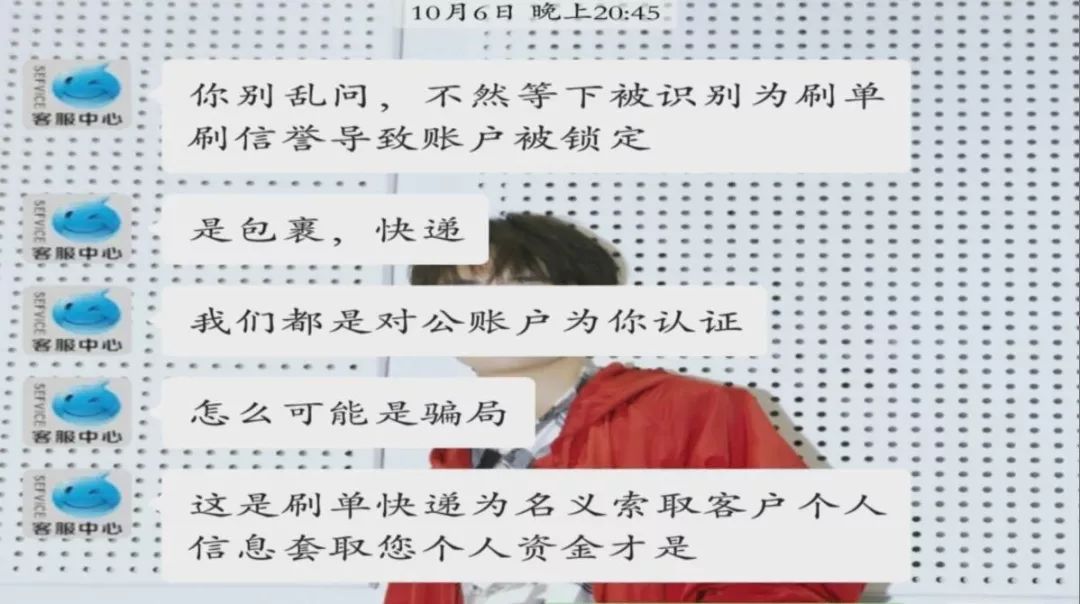 10月6日 晚上20:45
SEFVICE
客服中心
你别乱问，不然等下被识别为刷单
刷信誉导致账户被锁定
SEFVICE
客服中心
是包裹，快递
SEFVICE
客服中心
我们都是对公账户为你认证
SEFVICE
客服中心
怎么可能是骗局
SEFVICE
客服中心
这是刷单快递为名义索取客户个人
信息套取您个人资金才是